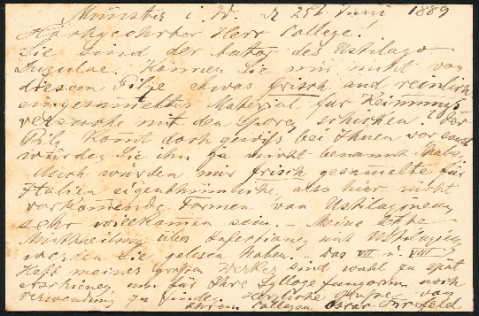 Münster i. W. d 25t Juni 1889
Hochgeehrter Herr College!
Sie sind der Autor des Ustilago
Können Sie mir nicht von
diesem Pilze etwas frisch und reinlich
eingesammeltes Material für Keimungs
versuche mit den Sporen schicken? Der
Pilz kommt doch gewiss bei Ihnen vor sonst
würden Sie ihn ja nicht benannt haben.
Auch würden mir frisch gesammelte für
Italien eigenthümliche, also hier nicht
vorkommende Formen von Ustilagineen
sehr willkommen sein. – Meine letzte
Mittheilung über und Ustilagineen
werden Sie gelesen haben. – Das VII u. VIII
Heft meines großen Werkes sind wohl zu spät
erschienen um für Ihre Sylloge fungorum noch
Verwendung zu finden. Herzliche Grüße von
Ihrem Collegen Oscar Brefeld